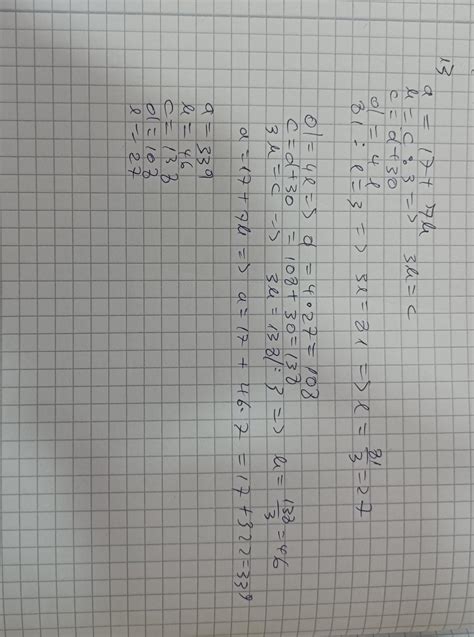 13
a = 17 + 7b
b = c : 3 => 3b = c
c = d + 30
d = 4e
81 : e = 3 => 3e = 81 => e = 81/3 = 27
d = 4e => d = 4·27 = 108
c = d + 30 = 108 + 30 = 138
3b = c => 3b = 138 |: 3 => b = 138/3 = 46
a = 17 + 7b => a = 17 + 46·7 = 17 + 322 = 339
a = 339
b = 46
c = 138
d = 108
e = 27